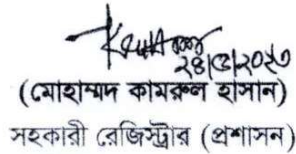 ২৪|৫|২০২৩
(মোহাম্মদ কামরুল হাসান)
সহকারী রেজিস্ট্রার (প্রশাসন)